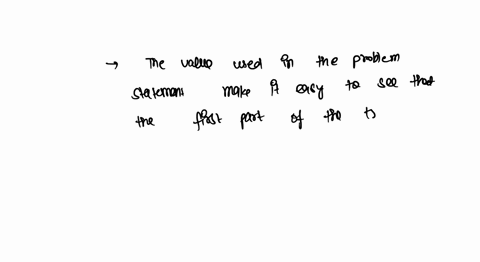 → The value used in the problem
statement make it easy to see that
the first part of the ts